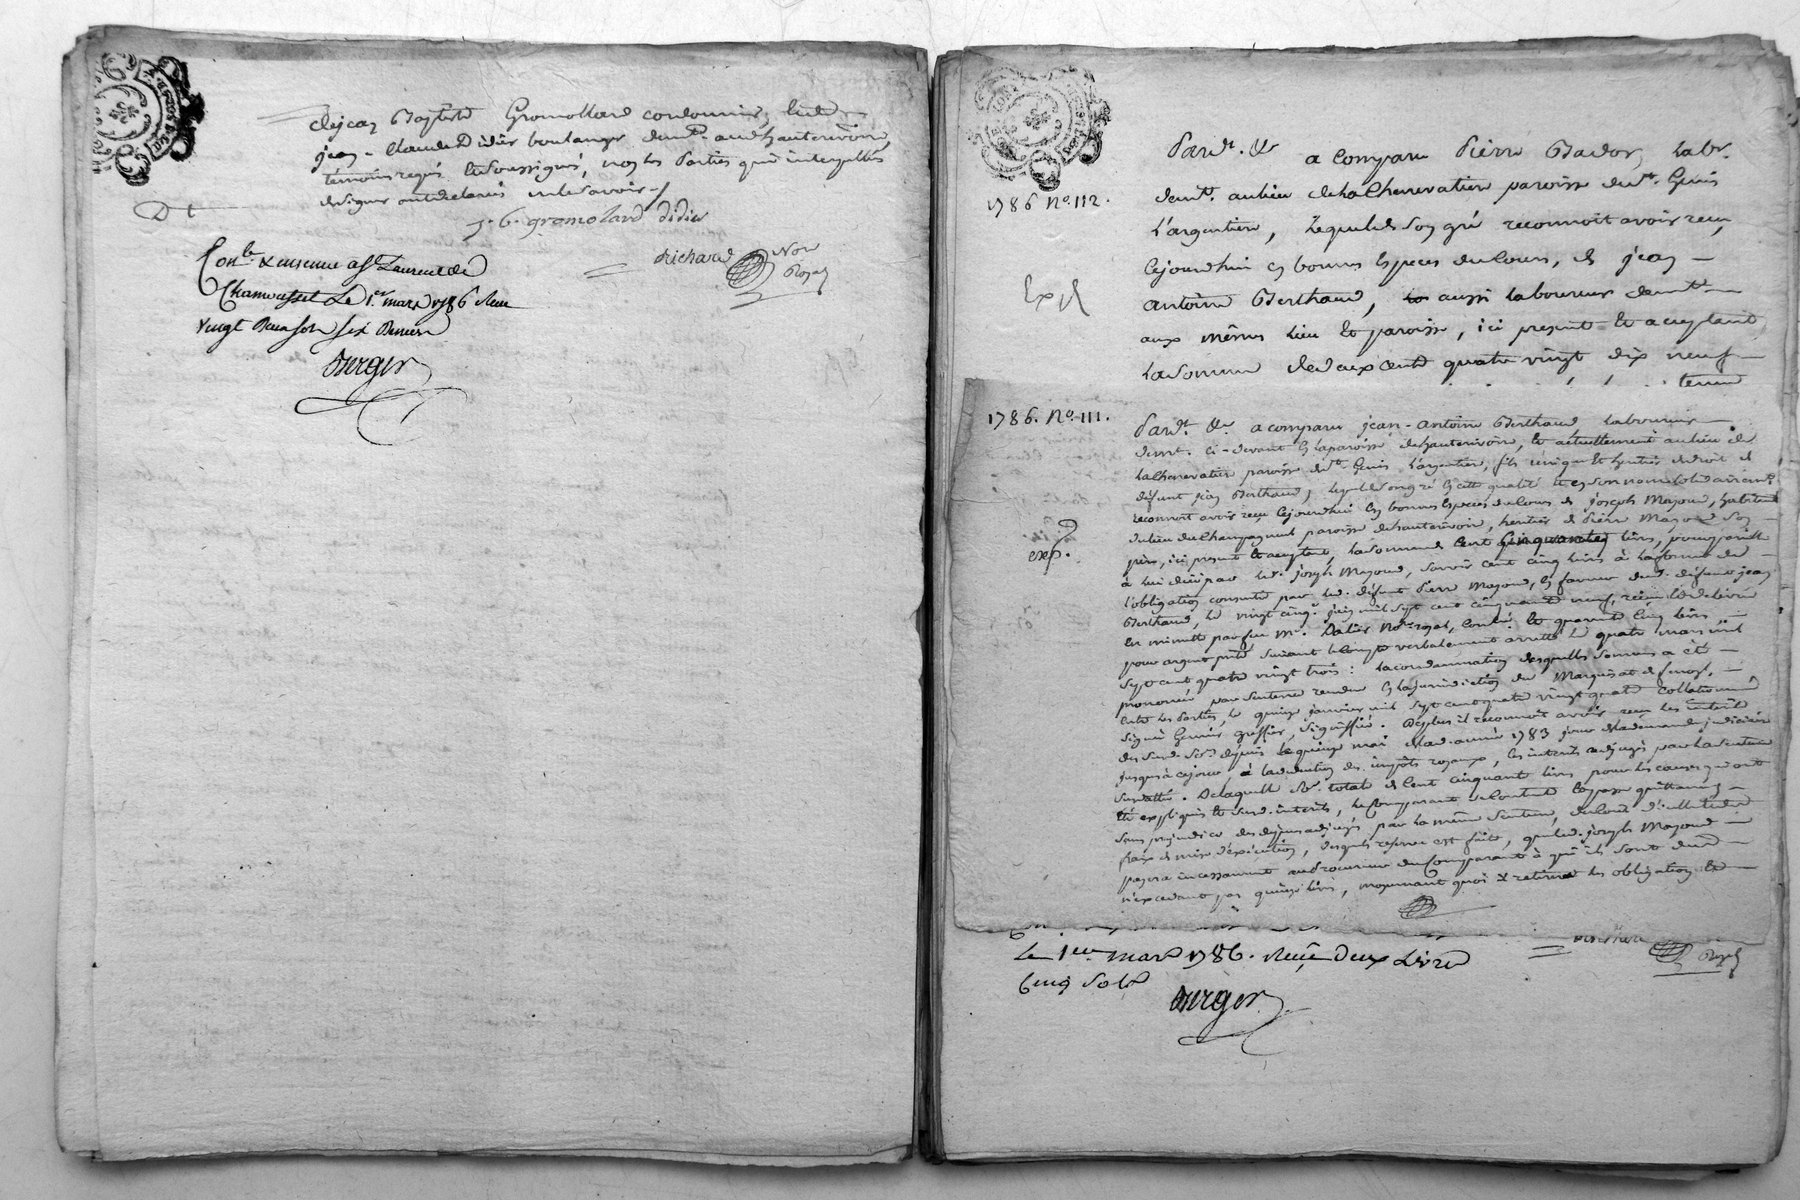 de jean Baptiste Gromollard cordonnier, et de
jean-Claude Didier boulanger demt. aud. hauterivoire,
témoins requis et soussignés, non les parties qui interpellées
de signer ont déclaré ne le savoir
J. B. gromolard didier
richard Nore
Royal
Conlé & insinué a St Laurent de
Chamousset le 1er mars 1786 Reçu
vingt deux sols six deniers
Berger
1786 No. 112.
Pardt. &c a comparu Pierre Bador, labr.
demt. au lieu de la Chenevatiere paroisse de St. Genis
l'argentiere, lequel de son gré reconnoit avoir reçu
cejourdhui en bonnes especes du cours, de jean
antoine Berthaud, aussi laboureur demt.
aux mêmes lieu et paroisse, ici present et acceptant
la somme de deux cent quatre vingt dix neuf
1786. No. 111.
exp.
Pardt. &c a comparu jean-antoine Berthaud laboureur
demt. ci-devant en la paroisse de hauterivoire, et actuellement au lieu de
la Chenevatiere paroisse de St. Genis l'argentiere, fils unique et heritier de droit de
défunt jean Berthaud, lequel de son gré en cette qualité et en son nom
reconnoit avoir reçu cejourdhui en bonnes especes du cours de joseph Mazoud, habitant
du lieu de Champagneul paroisse de hauterivoire, heritier de Pierre Mazoud son
père, ici present et acceptant, la somme de cent cinquante livres,
à lui due par led. joseph Mazoud, savoir cent cinq livres à la forme de
l'obligation consentie par led. défunt Pierre Mazoud, en faveur dud. défunt jean
Berthaud, le vingt cinq juin mil sept cent cinquante neuf, reçue
en minutte par feu Me. Dalier Nore royal, contlé. et quarante cinq livres
pour argent prêté suivant le compte verbalement arretté le quatre mars mil
sept cent quatre vingt trois: la condamnation desquelles sommes a été
prononcée par sentence rendue en la jurisdiction du Marquisat de
entre les parties, le quinze janvier mil sept cent quatre vingt quatre collationné
signé greffier, signiffié. De plus il reconnoit avoir reçu les interêts
desd. sommes depuis le quinze mai de lad. année 1783 jour de la demande judiciaire
jusqu'à cejour, à la déduction des impôts royaux, les interêts adjugés par la sentence
susdattée. De laquelle se. totale de cent cinquante livres pour les causes qui ont
été expliquées et desd. interêts, le comparant se contente et passe quittance,
sans prejudice des dépens adjugés par la même sentence,
frais de mise d'exécution, desquels reserve est faite, que led. joseph Mazoud
payera incessamment au Procureur du comparant à qui ils sont dus
n'excedant pas quinze livres, moyennant quoi il retirera les obligation et
Le 1er mars 1786. Reçu Deux Livre
Cinq sols
Berger
Royal